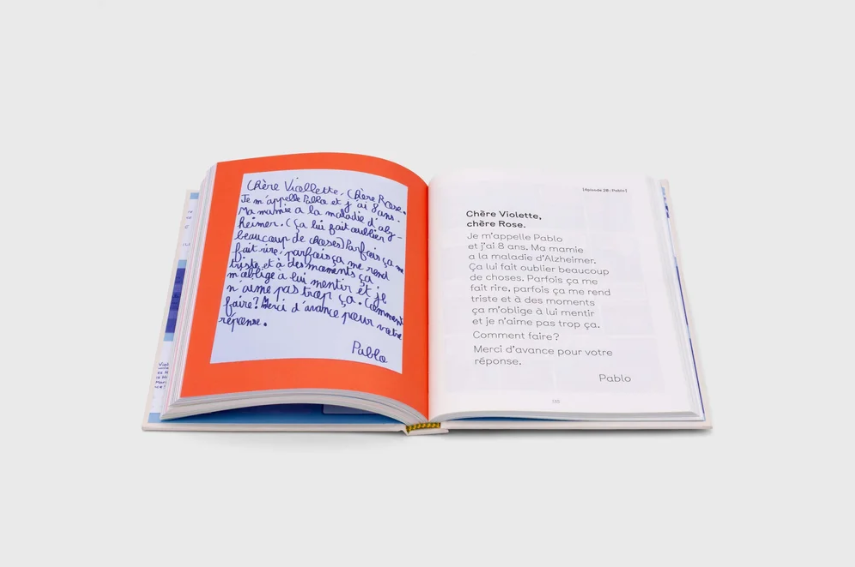 Chère Violette, chère Rose.
Je m'appelle Pablo et j'ai 8 ans.
Ma mamie a la maladie d'alz-
heimer. (Ça lui fait oublier
beaucoup de choses) Parfois ça me
fait rire, parfois ça me rend
triste et à des moments ça
m'oblige à lui mentir et je
n'aime pas trop ça. Comment
faire? Merci d'avance pour votre
réponse.
Pablo
[Episode 38 : Pablo]
Chère Violette,
chère Rose.
Je m'appelle Pablo
et j'ai 8 ans. Ma mamie
a la maladie d'Alzheimer.
Ça lui fait oublier beaucoup
de choses. Parfois ça me
fait rire, parfois ça me rend
triste et à des moments
ça m'oblige à lui mentir
et je n'aime pas trop ça.
Comment faire?
Merci d'avance pour votre
réponse.
Pablo